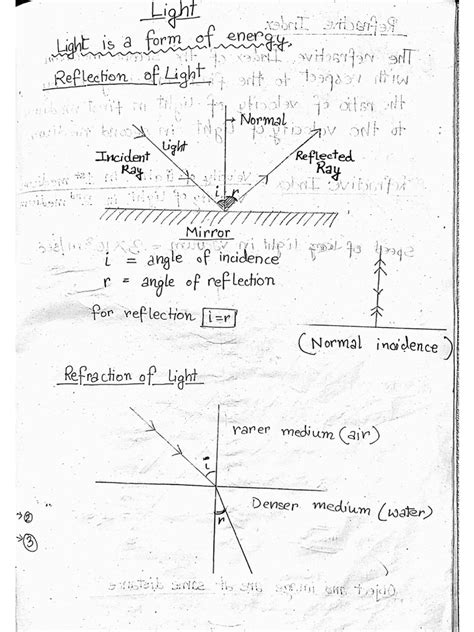 Light
Light is a form of energy.
Reflection of Light
Normal
Light
Incident
Ray
Reflected
Ray
i r
Mirror
i = angle of incidence
r = angle of reflection
for reflection i=r
(Normal incidence)
Refraction of Light
rarer medium (air)
i
Denser medium (water)
r
→②
→③